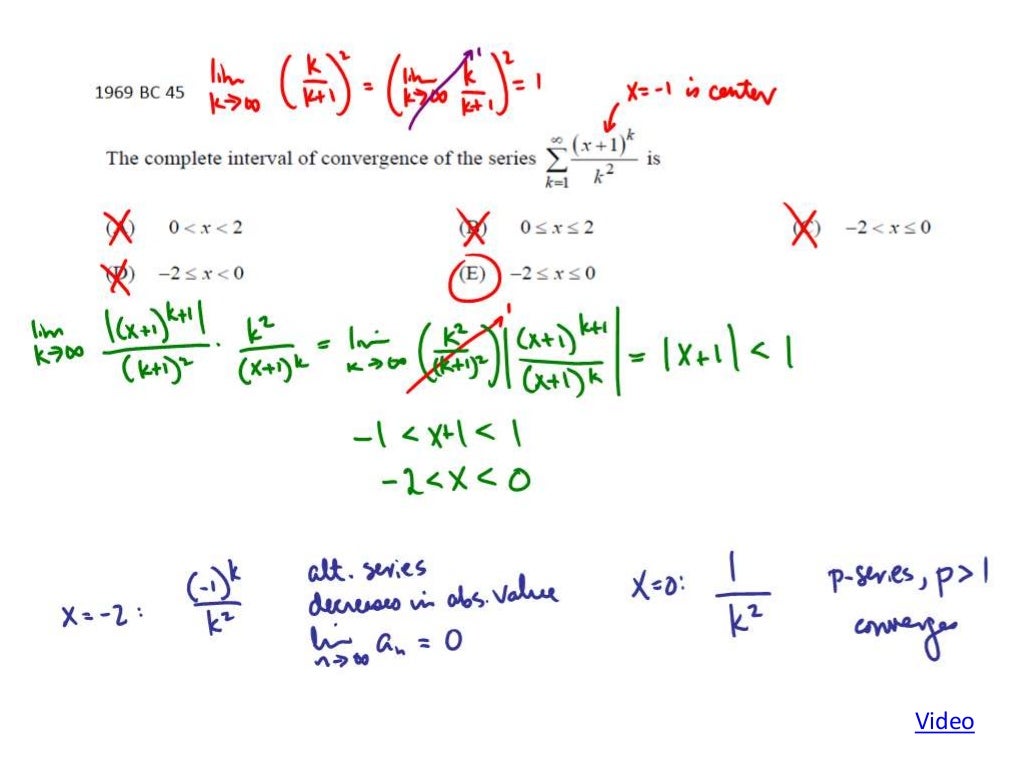 1969 BC 45 lim k→∞ (k/(k+1))² = (lim k→∞ k/(k+1))² = 1
1
x=-1 is center
The complete interval of convergence of the series ∑_{k=1}^{∞} (x+1)^k/k² is
(A) 0 < x < 2 (B) 0 ≤ x ≤ 2 (C) −2 < x ≤ 0
(D) −2 ≤ x < 0 (E) −2 ≤ x ≤ 0
lim k→∞ |(x+1)^{k+1}|/(k+1)² · k²/(x+1)^k = lim k→∞ (k²/(k+1)²) |(x+1)^{k+1}/(x+1)^k| = |x+1| < 1
1
-1 < x+1 < 1
-2 < x < 0
x=-2: (-1)^k/k² alt. series
decreases in abs. value
lim n→∞ aₙ = 0
x=0: 1/k² p-series, p>1
converges
Video